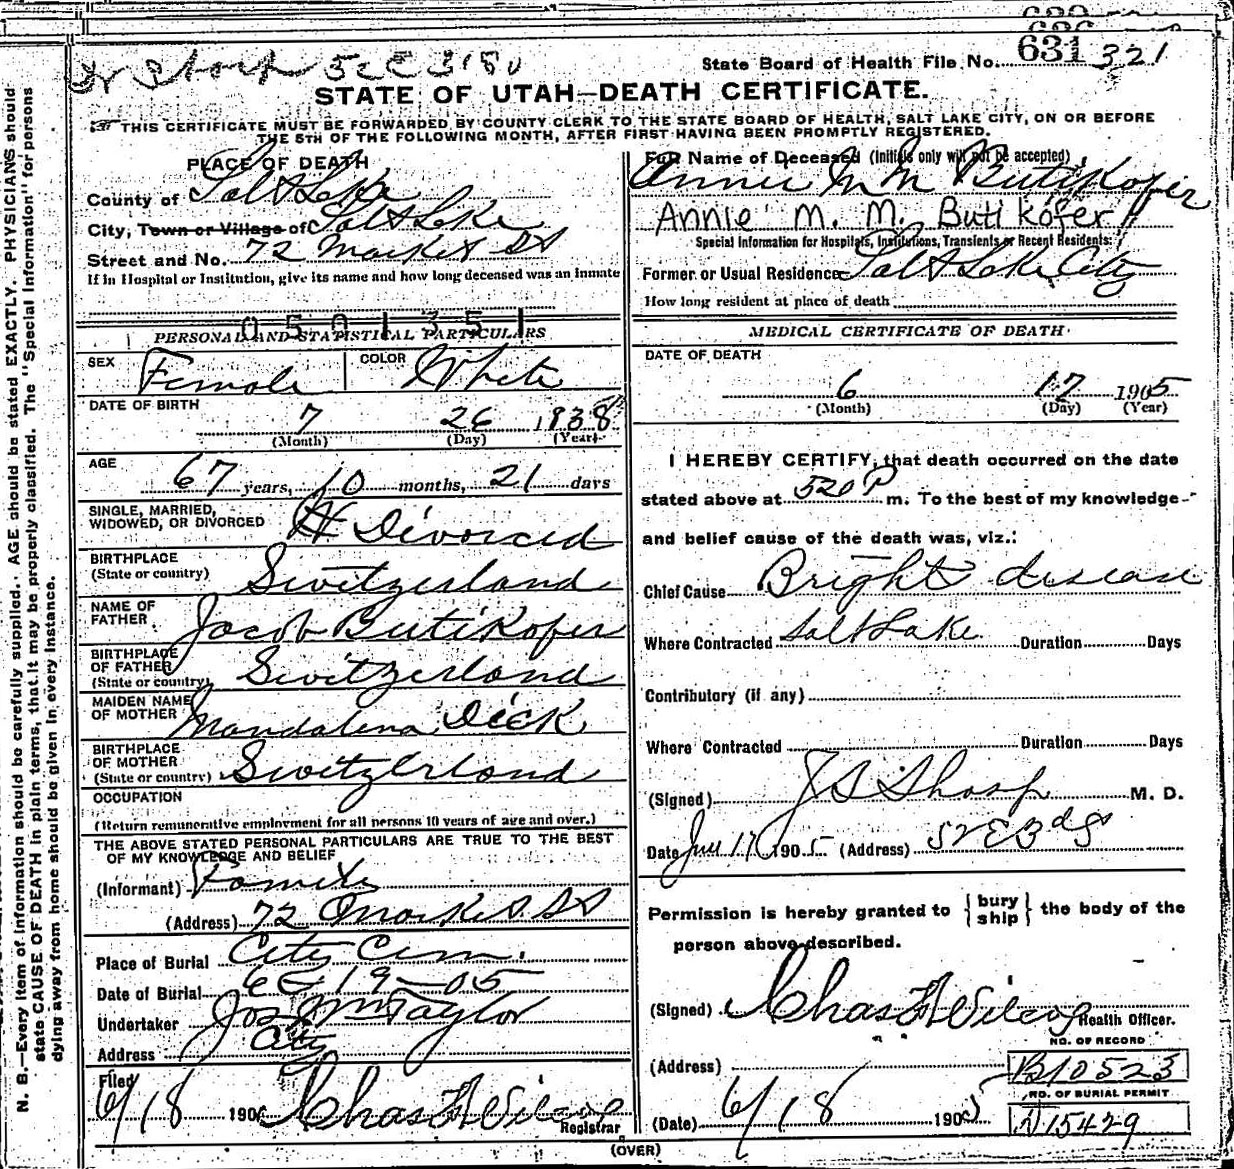 State Board of Health File No. 631 321
STATE OF UTAH—DEATH CERTIFICATE.
THIS CERTIFICATE MUST BE FORWARDED BY COUNTY CLERK TO THE STATE BOARD OF HEALTH, SALT LAKE CITY, ON OR BEFORE
THE 5TH OF THE FOLLOWING MONTH, AFTER FIRST HAVING BEEN PROMPTLY REGISTERED.
PLACE OF DEATH
County of Salt Lake
City, Town or Village of Salt Lake
Street and No. 72 Market St
If in Hospital or Institution, give its name and how long deceased was an inmate
0501351
PERSONAL AND STATISTICAL PARTICULARS
SEX Female COLOR White
DATE OF BIRTH
7 26 1838
(Month) (Day) (Year)
AGE
67 years, 10 months, 21 days
SINGLE, MARRIED,
WIDOWED, OR DIVORCED Divorced
BIRTHPLACE
(State or country) Switzerland
NAME OF
FATHER Jacob Butikofer
BIRTHPLACE
OF FATHER
(State or country) Switzerland
MAIDEN NAME
OF MOTHER Mandalena Dick
BIRTHPLACE
OF MOTHER
(State or country) Switzerland
OCCUPATION
(Return remunerative employment for all persons 10 years of age and over.)
THE ABOVE STATED PERSONAL PARTICULARS ARE TRUE TO THE BEST
OF MY KNOWLEDGE AND BELIEF
(Informant) Family
(Address) 72 Market St
Place of Burial City Cem.
Date of Burial 6-19-05
Undertaker Jos Wm Taylor
Address City
Filed
6/18 190 Chas F Wilcox
Registrar
(OVER)
Full Name of Deceased (Initials only will not be accepted)
Annie M M Butikofer
Annie M. M. Butikofer
Special Information for Hospitals, Institutions, Transients or Recent Residents:
Former or Usual Residence Salt Lake City
How long resident at place of death
MEDICAL CERTIFICATE OF DEATH
DATE OF DEATH
6 17 1905
(Month) (Day) (Year)
I HEREBY CERTIFY, that death occurred on the date
stated above at 520 P m. To the best of my knowledge
and belief cause of the death was, viz.:
Chief Cause Bright disease
Where Contracted Salt Lake Duration Days
Contributory (if any)
Where Contracted Duration Days
(Signed) J S Sharp M. D.
Date June 17 1905 (Address)
Permission is hereby granted to { bury
ship } the body of the
person above described.
(Signed) Chas F Wilcox
Health Officer.
(Address)
(Date) 6/18 1905
NO. OF RECORD
B10523
NO. OF BURIAL PERMIT
N15429
N. B.—Every item of information should be carefully supplied. AGE should be stated EXACTLY. PHYSICIANS should
state CAUSE OF DEATH in plain terms, that it may be properly classified. The "Special Information" for persons
dying away from home should be given in every instance.